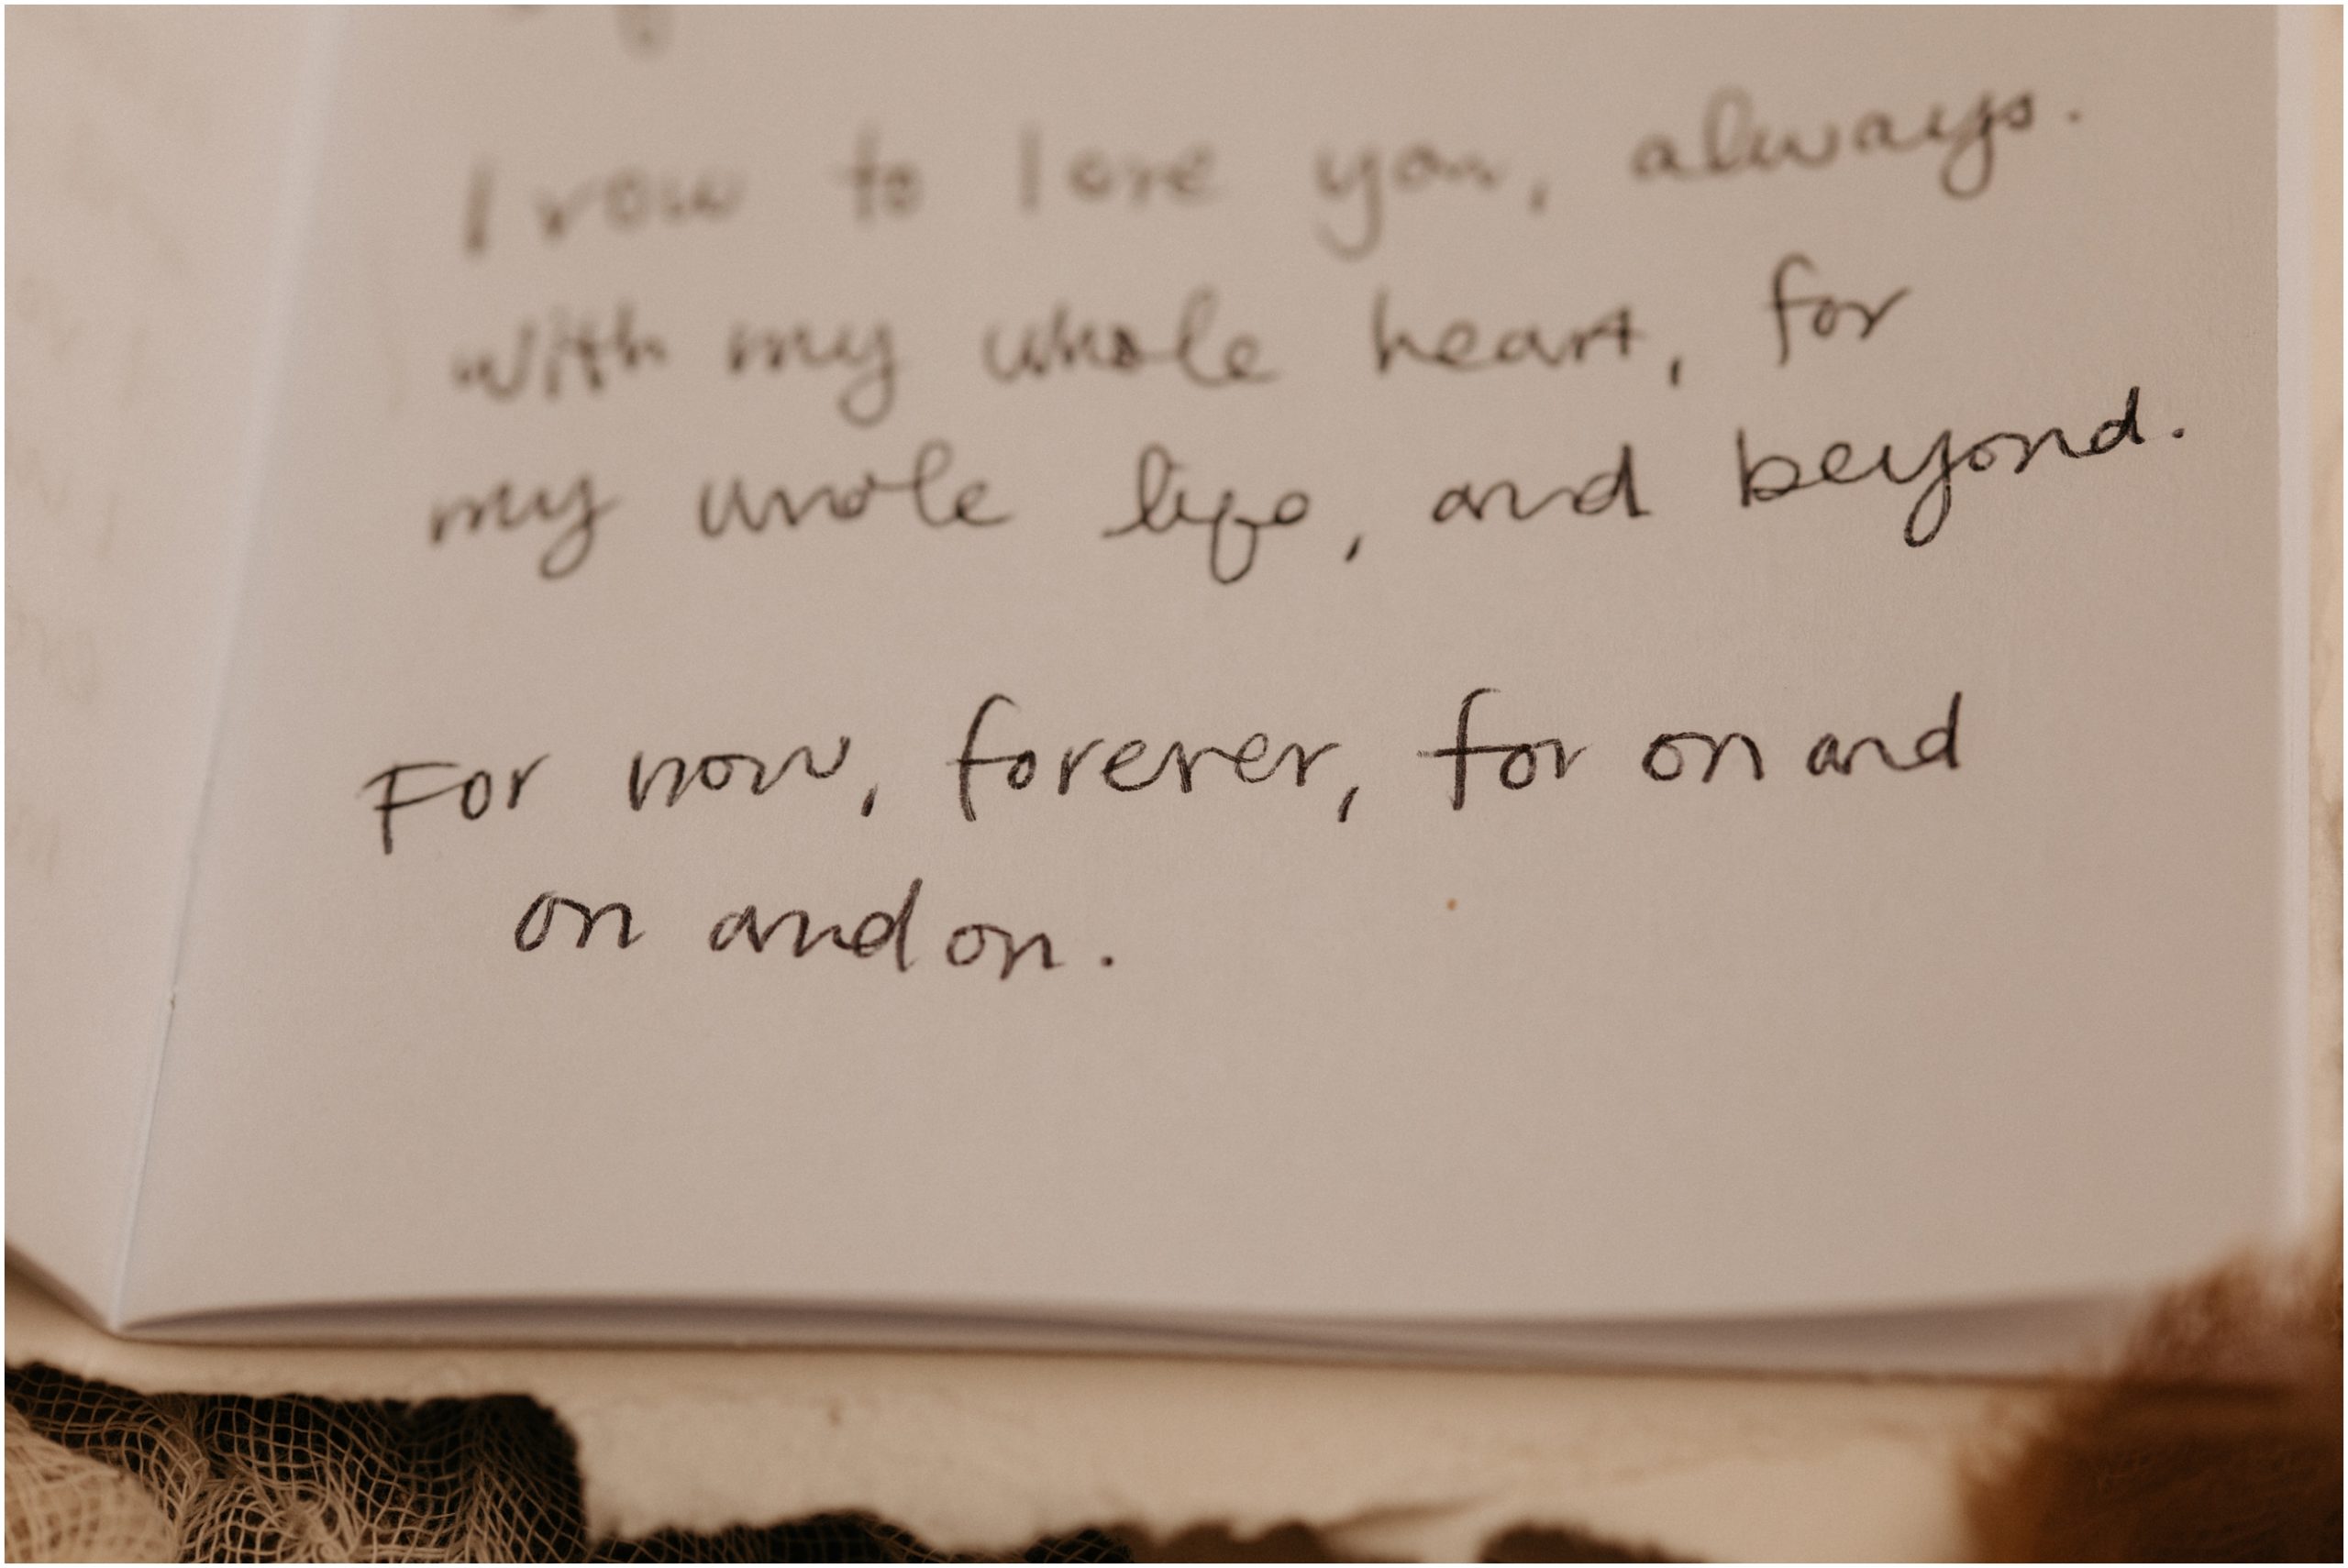 I vow to love you, always.
with my whole heart, for
my whole life, and beyond.
For now, forever, for on and
on and on.